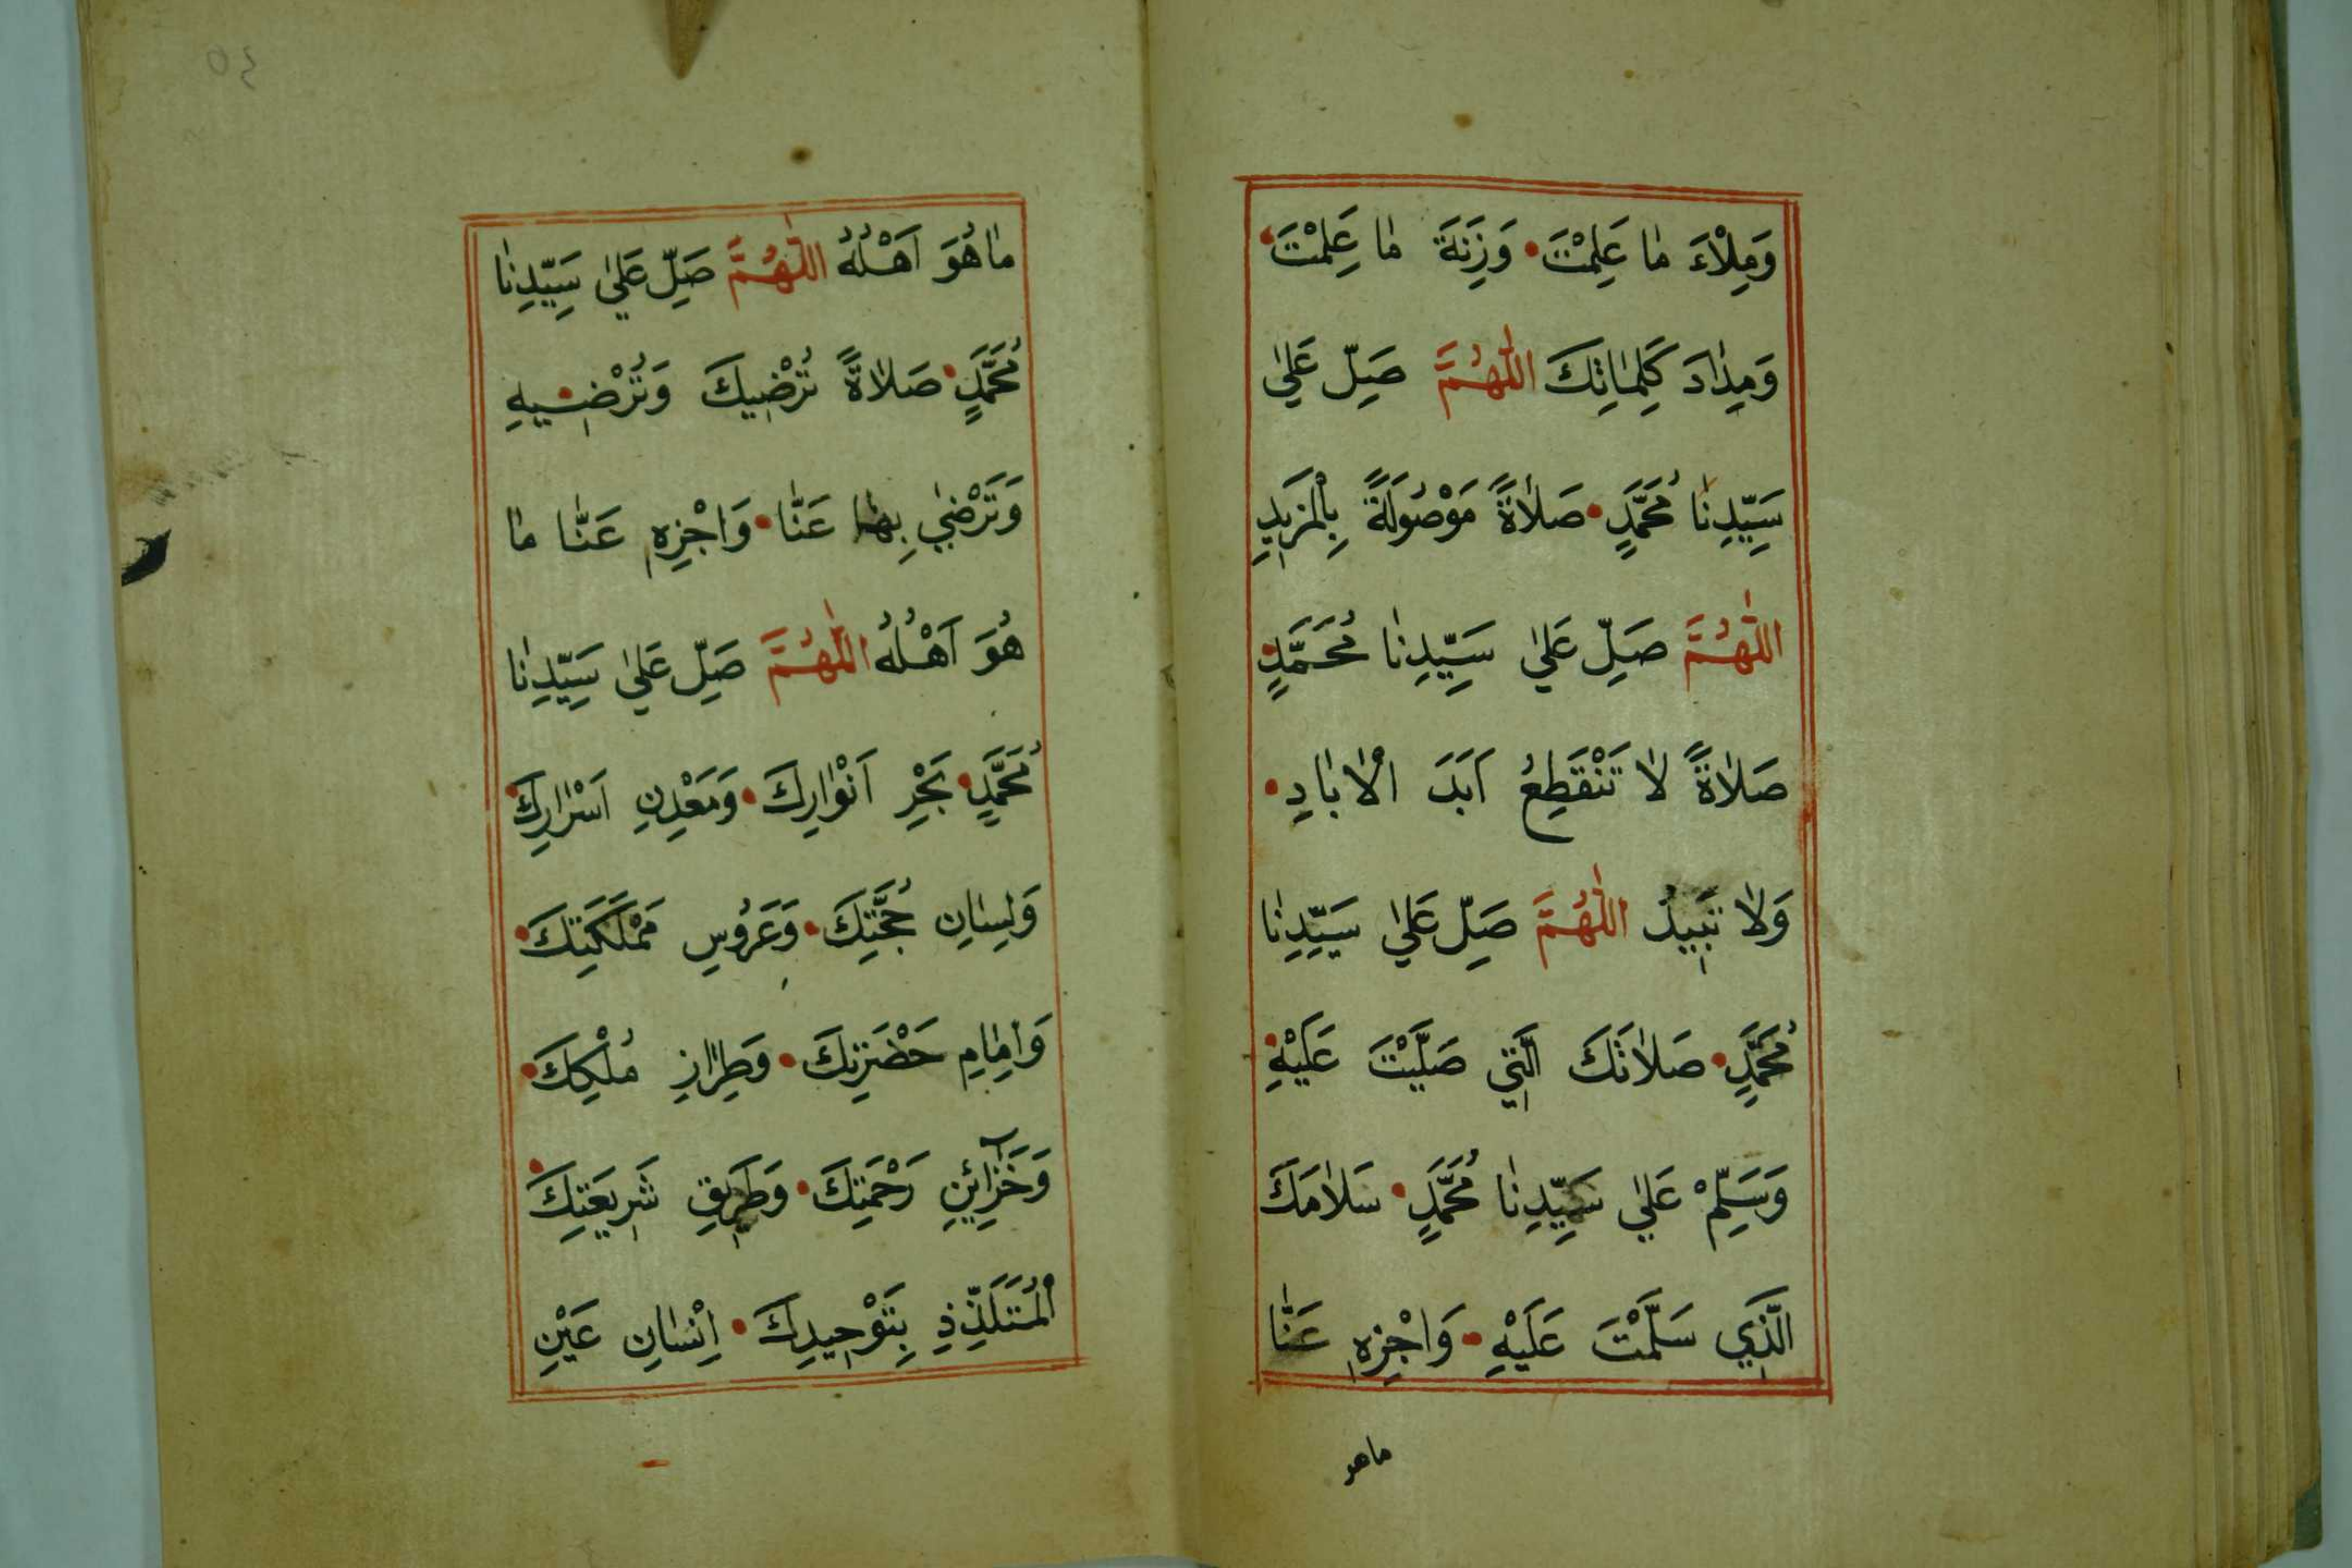 وَمِلْاءَ مَا عَلِمْتَ • وَزِنَةَ مَا عَلِمْتَ •
وَمِدَادَ كَلِمَاتِكَ اللّٰهُمَّ صَلِّ عَلٰي
سَيِّدِنَا مُحَمَّدٍ • صَلَاةً مَوْصُولَةً بِالْمَزِيدِ
اللّٰهُمَّ صَلِّ عَلٰي سَيِّدِنَا مُحَمَّدٍ •
صَلَاةً لَا تَنْقَطِعُ اَبَدَ الْاٰبَادِ •
وَلَا تَبِيدُ اللّٰهُمَّ صَلِّ عَلٰي سَيِّدِنَا
مُحَمَّدٍ • صَلَاتَكَ الَّتِي صَلَّيْتَ عَلَيْهِ •
وَسَلِّمْ عَلٰي سَيِّدِنَا مُحَمَّدٍ • سَلَامَكَ
الَّذِي سَلَّمْتَ عَلَيْهِ • وَاجْزِهِ عَنَّا
ماهو
٤٥
مَا هُوَ اَهْلُهُ اللّٰهُمَّ صَلِّ عَلٰي سَيِّدِنَا
مُحَمَّدٍ • صَلَاةً تُرْضِيكَ وَتُرْضِيهِ •
وَتَرْضٰي بِهَا عَنَّا • وَاجْزِهِ عَنَّا مَا
هُوَ اَهْلُهُ اللّٰهُمَّ صَلِّ عَلٰي سَيِّدِنَا
مُحَمَّدٍ • بَحْرِ اَنْوَارِكَ • وَمَعْدِنِ اَسْرَارِكَ •
وَلِسَانِ حُجَّتِكَ • وَعَرُوسِ مَمْلَكَتِكَ •
وَاِمَامِ حَضْرَتِكَ • وَطِرَازِ مُلْكِكَ •
وَخَزَآئِنِ رَحْمَتِكَ • وَطَرِيقِ شَرِيعَتِكَ •
الْمُتَلَذِّذِ بِتَوْحِيدِكَ • اِنْسَانِ عَيْنِ